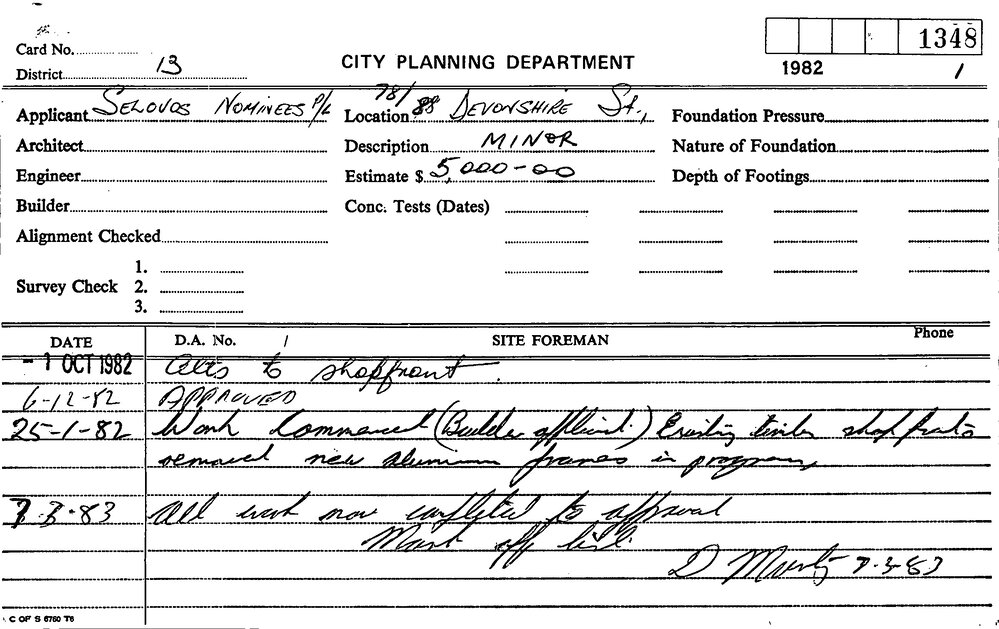 1348
Card No.
District 13
CITY PLANNING DEPARTMENT
1982 /
Applicant SELOVOS NOMINEES P/L Location 78/88 DEVONSHIRE St., Foundation Pressure
Architect Description MINOR Nature of Foundation
Engineer Estimate $ 5,000-00 Depth of Footings
Builder Conc. Tests (Dates)
Alignment Checked
1.
Survey Check 2.
3.
DATE D.A. No. / SITE FOREMAN Phone
- 1 OCT 1982 Alts to shopfront.
6-12-82 APPROVED
25-1-82 Work Commenced (Builder applicant.) Existing timber shop fronts
removed new aluminium frames in progress
7-3-83 All work now completed to approval
Mark off list.
D 7-3-83
C OF S 6760 T6